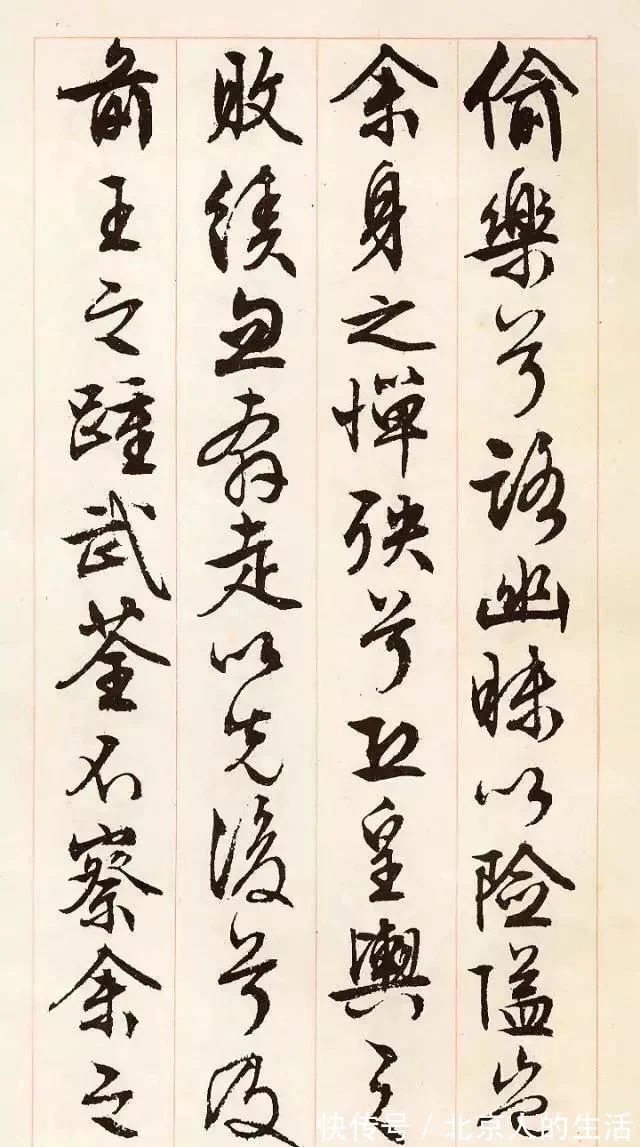 偷樂兮路幽昧以險隘豈
余身之憚殃兮恐皇輿之
敗績忽奔走以先後兮及
前王之踵武荃不察余之
快传号 / 北京人的生活